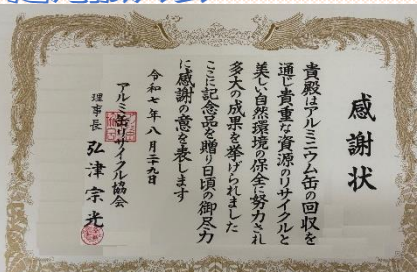 感謝状
貴殿はアルミニウム缶の回収を
通じ貴重な資源のリサイクルと
美しい自然環境の保全に努力され
多大の成果を挙げられました
ここに記念品を贈り日頃の御尽力
に感謝の意を表します
令和七年八月二十九日
アルミ缶リサイクル協会
理事長 弘津宗光